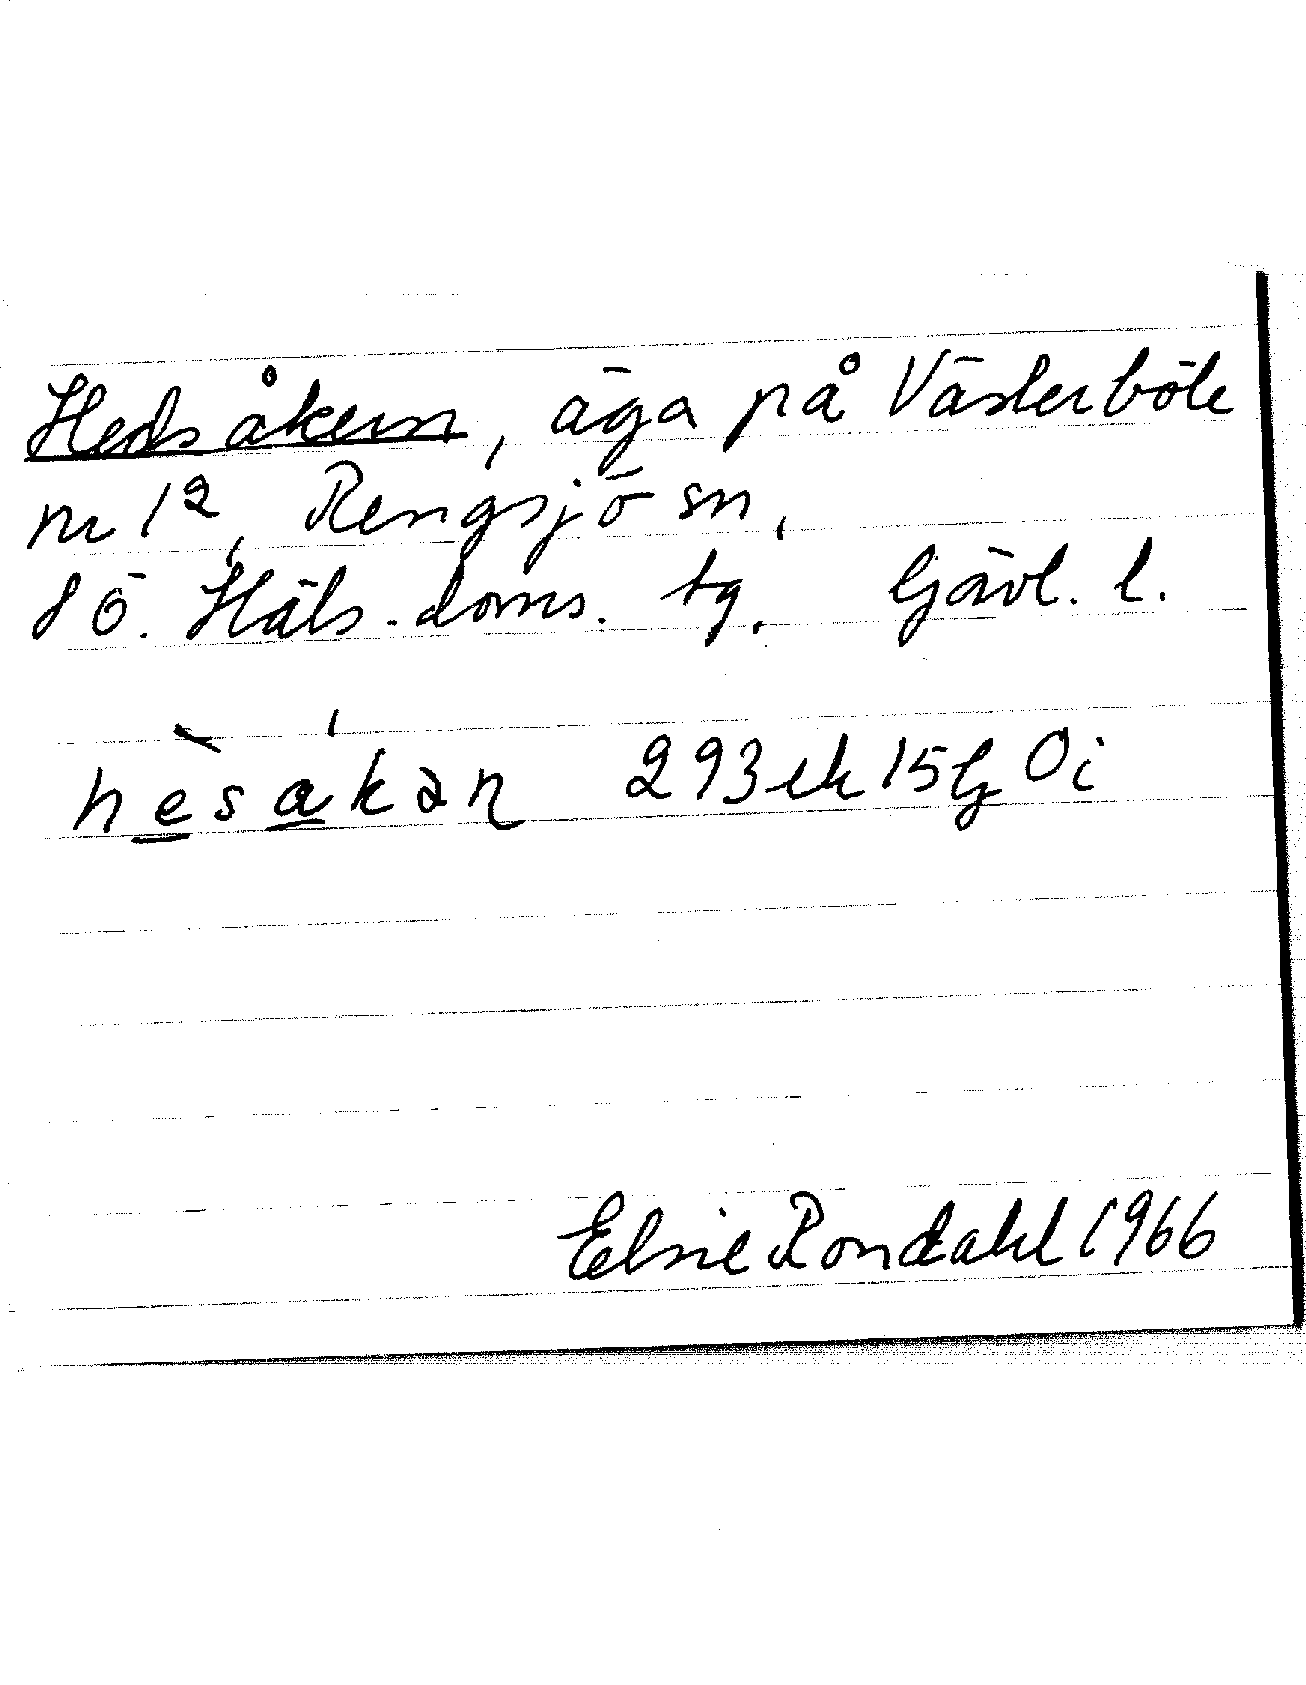 Hedsåkern, äga på Västerböle
nr 1², Rengsjö sn,
sö. Häls. doms. tg. Gävl. l.
hèsákəṇ 293 ek 15 Gj Oi
Elsie Rondahl 1966